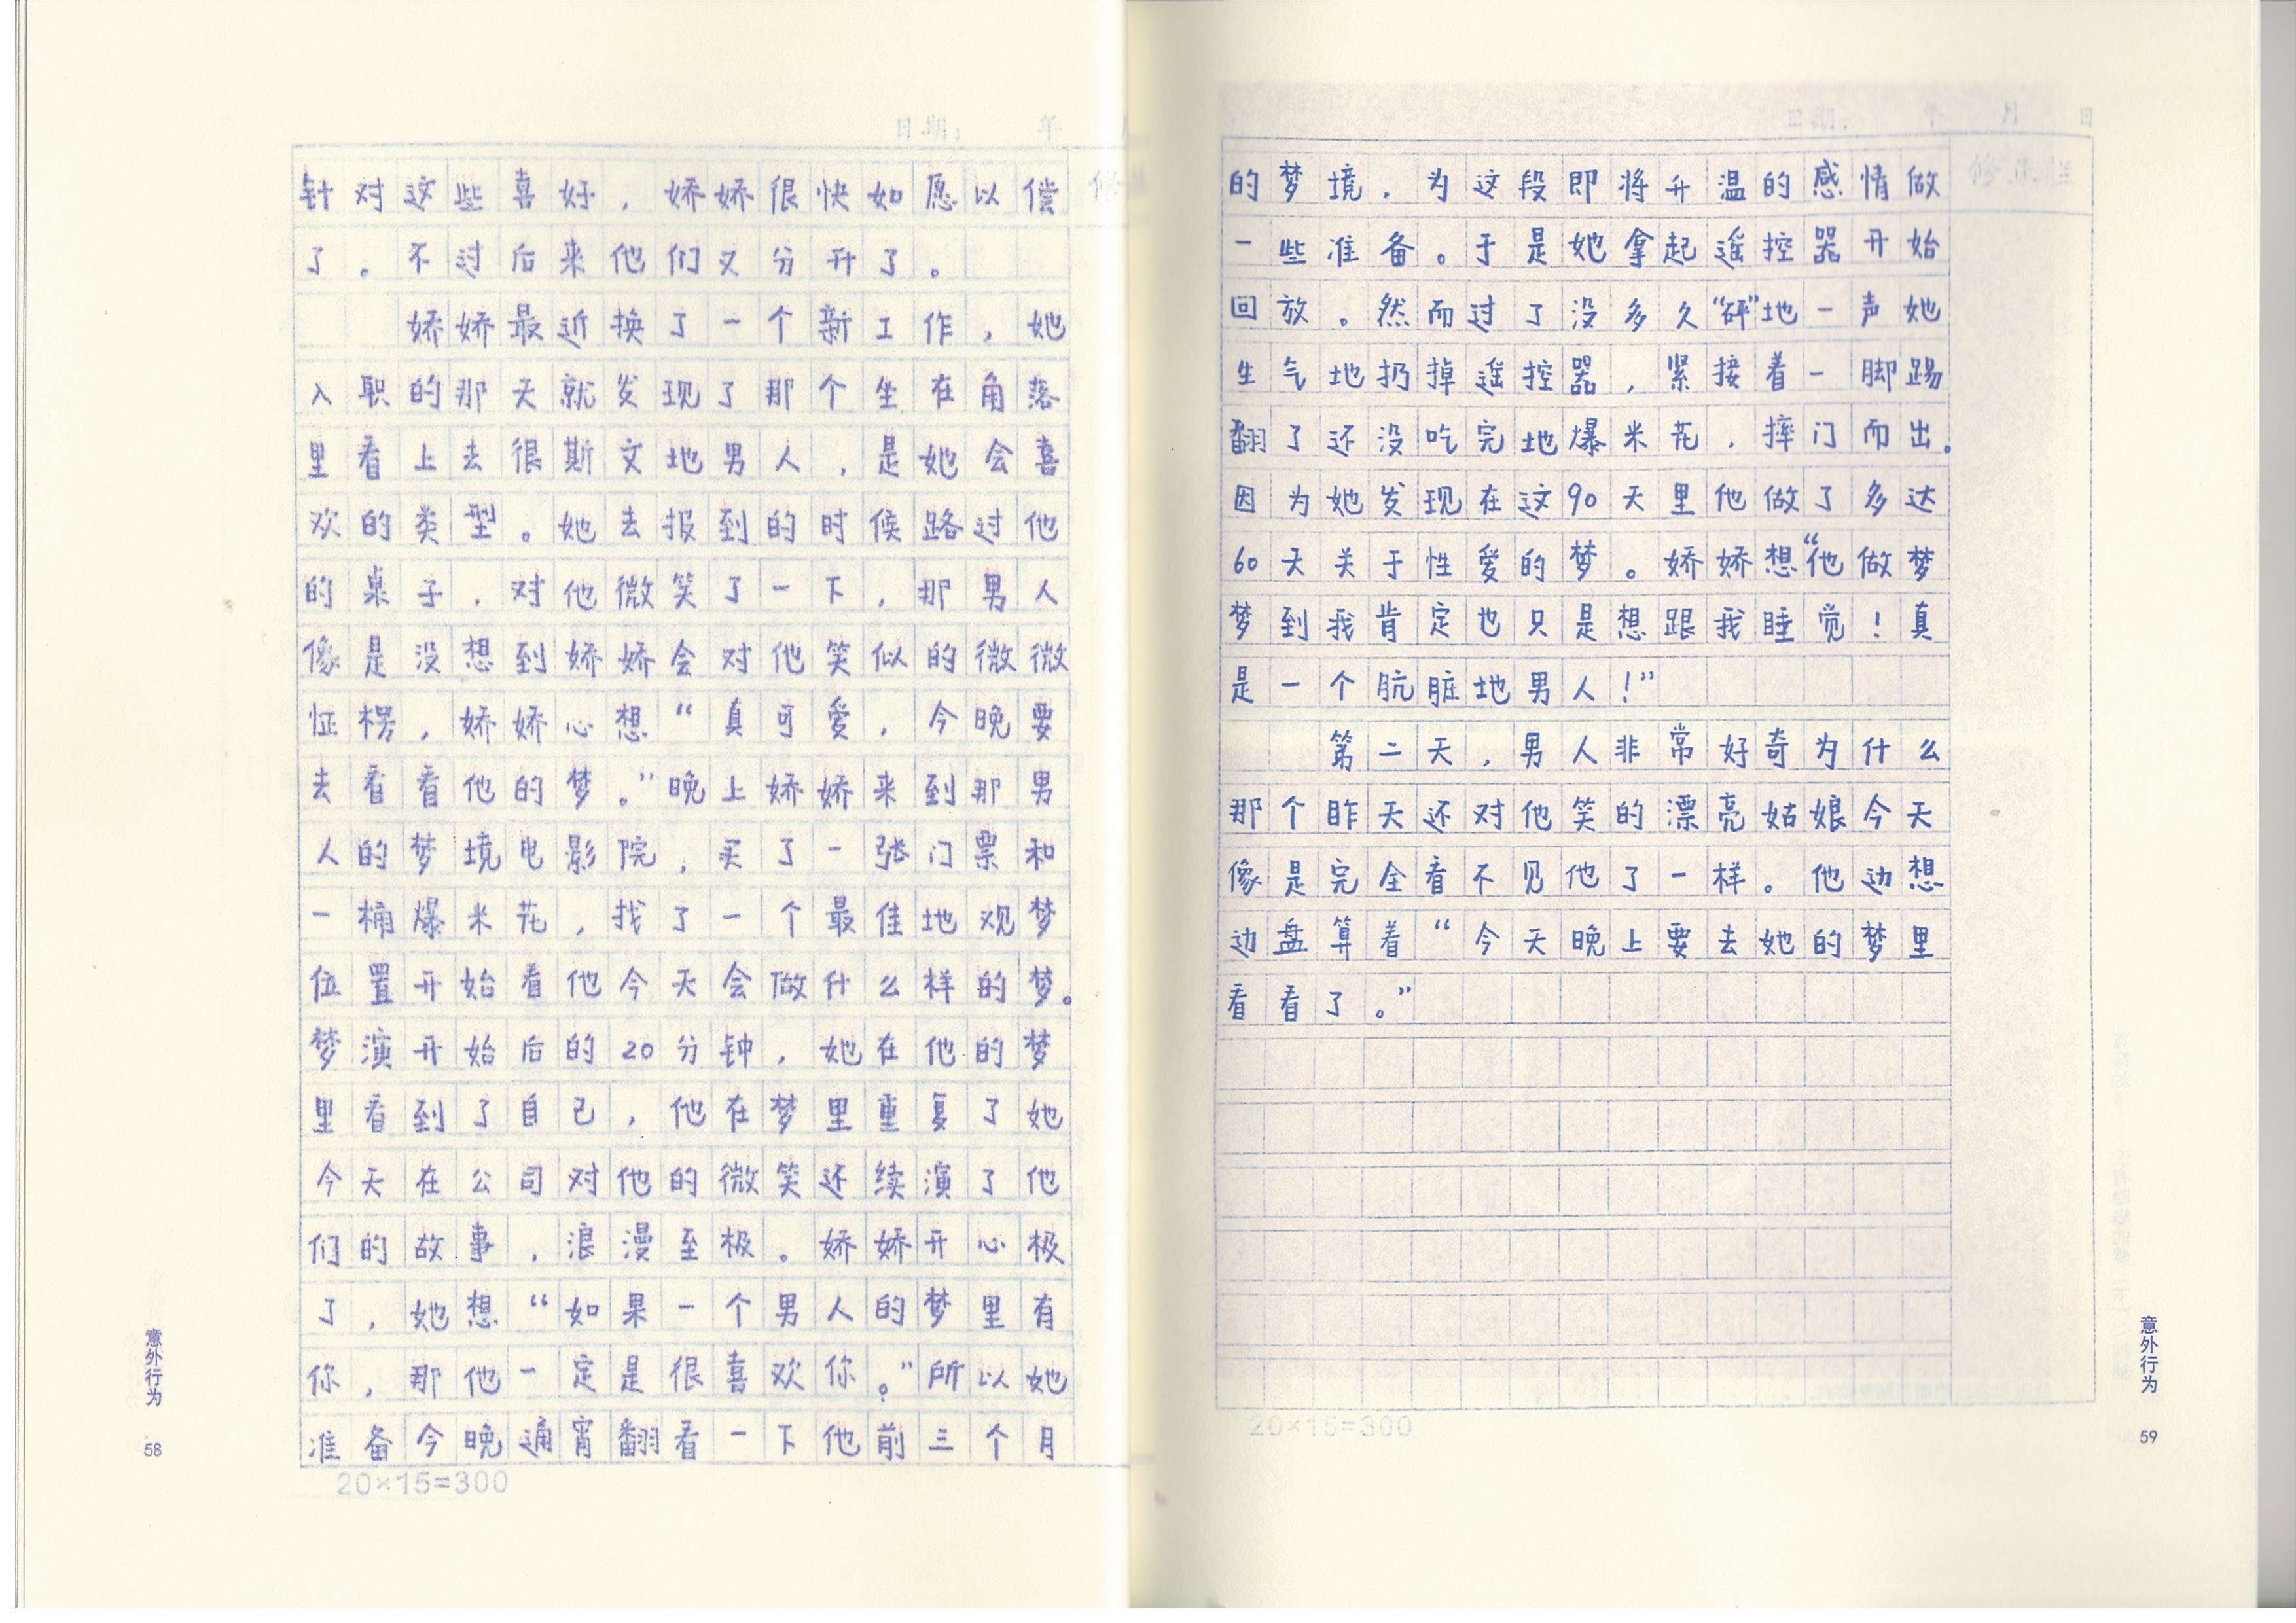 日期： 年 月
针对这些喜好，娇娇很快如愿以偿
了。不过后来他们又分开了。
娇娇最近换了一个新工作，她
入职的那天就发现了那个坐在角落
里看上去很斯文地男人，是她会喜
欢的类型。她去报到的时候路过他
的桌子，对他微笑了一下，那男人
像是没想到娇娇会对他笑似的微微
怔楞，娇娇心想“真可爱，今晚要
去看看他的梦。”晚上娇娇来到那男
人的梦境电影院，买了一张门票和
一桶爆米花，找了一个最佳地观梦
位置开始看他今天会做什么样的梦。
梦演开始后的20分钟，她在他的梦
里看到了自己，他在梦里重复了她
今天在公司对他的微笑还续演了他
们的故事，浪漫至极。娇娇开心极
了，她想“如果一个男人的梦里有
你，那他一定是很喜欢你。”所以她
准备今晚通宵翻看一下他前三个月
20×15=300
意外行为
58
日期： 年 月 日
修正栏
的梦境，为这段即将升温的感情做
一些准备。于是她拿起遥控器开始
回放。然而过了没多久“砰”地一声她
生气地扔掉遥控器，紧接着一脚踢
翻了还没吃完地爆米花，摔门而出。
因为她发现在这90天里他做了多达
60天关于性爱的梦。娇娇想“他做梦
梦到我肯定也只是想跟我睡觉！真
是一个肮脏地男人！”
第二天，男人非常好奇为什么
那个昨天还对他笑的漂亮姑娘今天
像是完全看不见他了一样。他边想
边盘算着“今天晚上要去她的梦里
看看了。”
20×15=300
意外行为
59